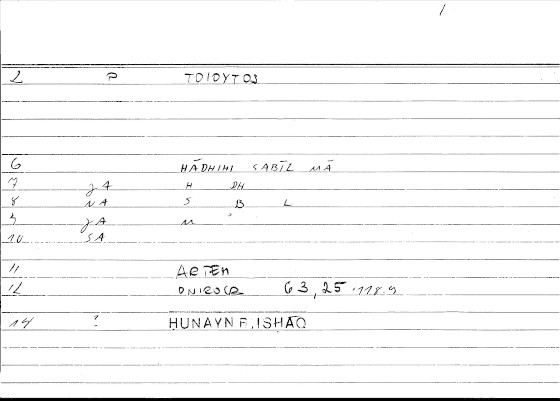 1
2 P TOIOYTOS
6 HĀDHIHI SABĪL MĀ
7 JA H DH
8 NA S B L
9 JA M
10 SA
11 ARTEM
12 ONIROCR 63,25 118.9
14 ? ḤUNAYN B. ISḤĀQ